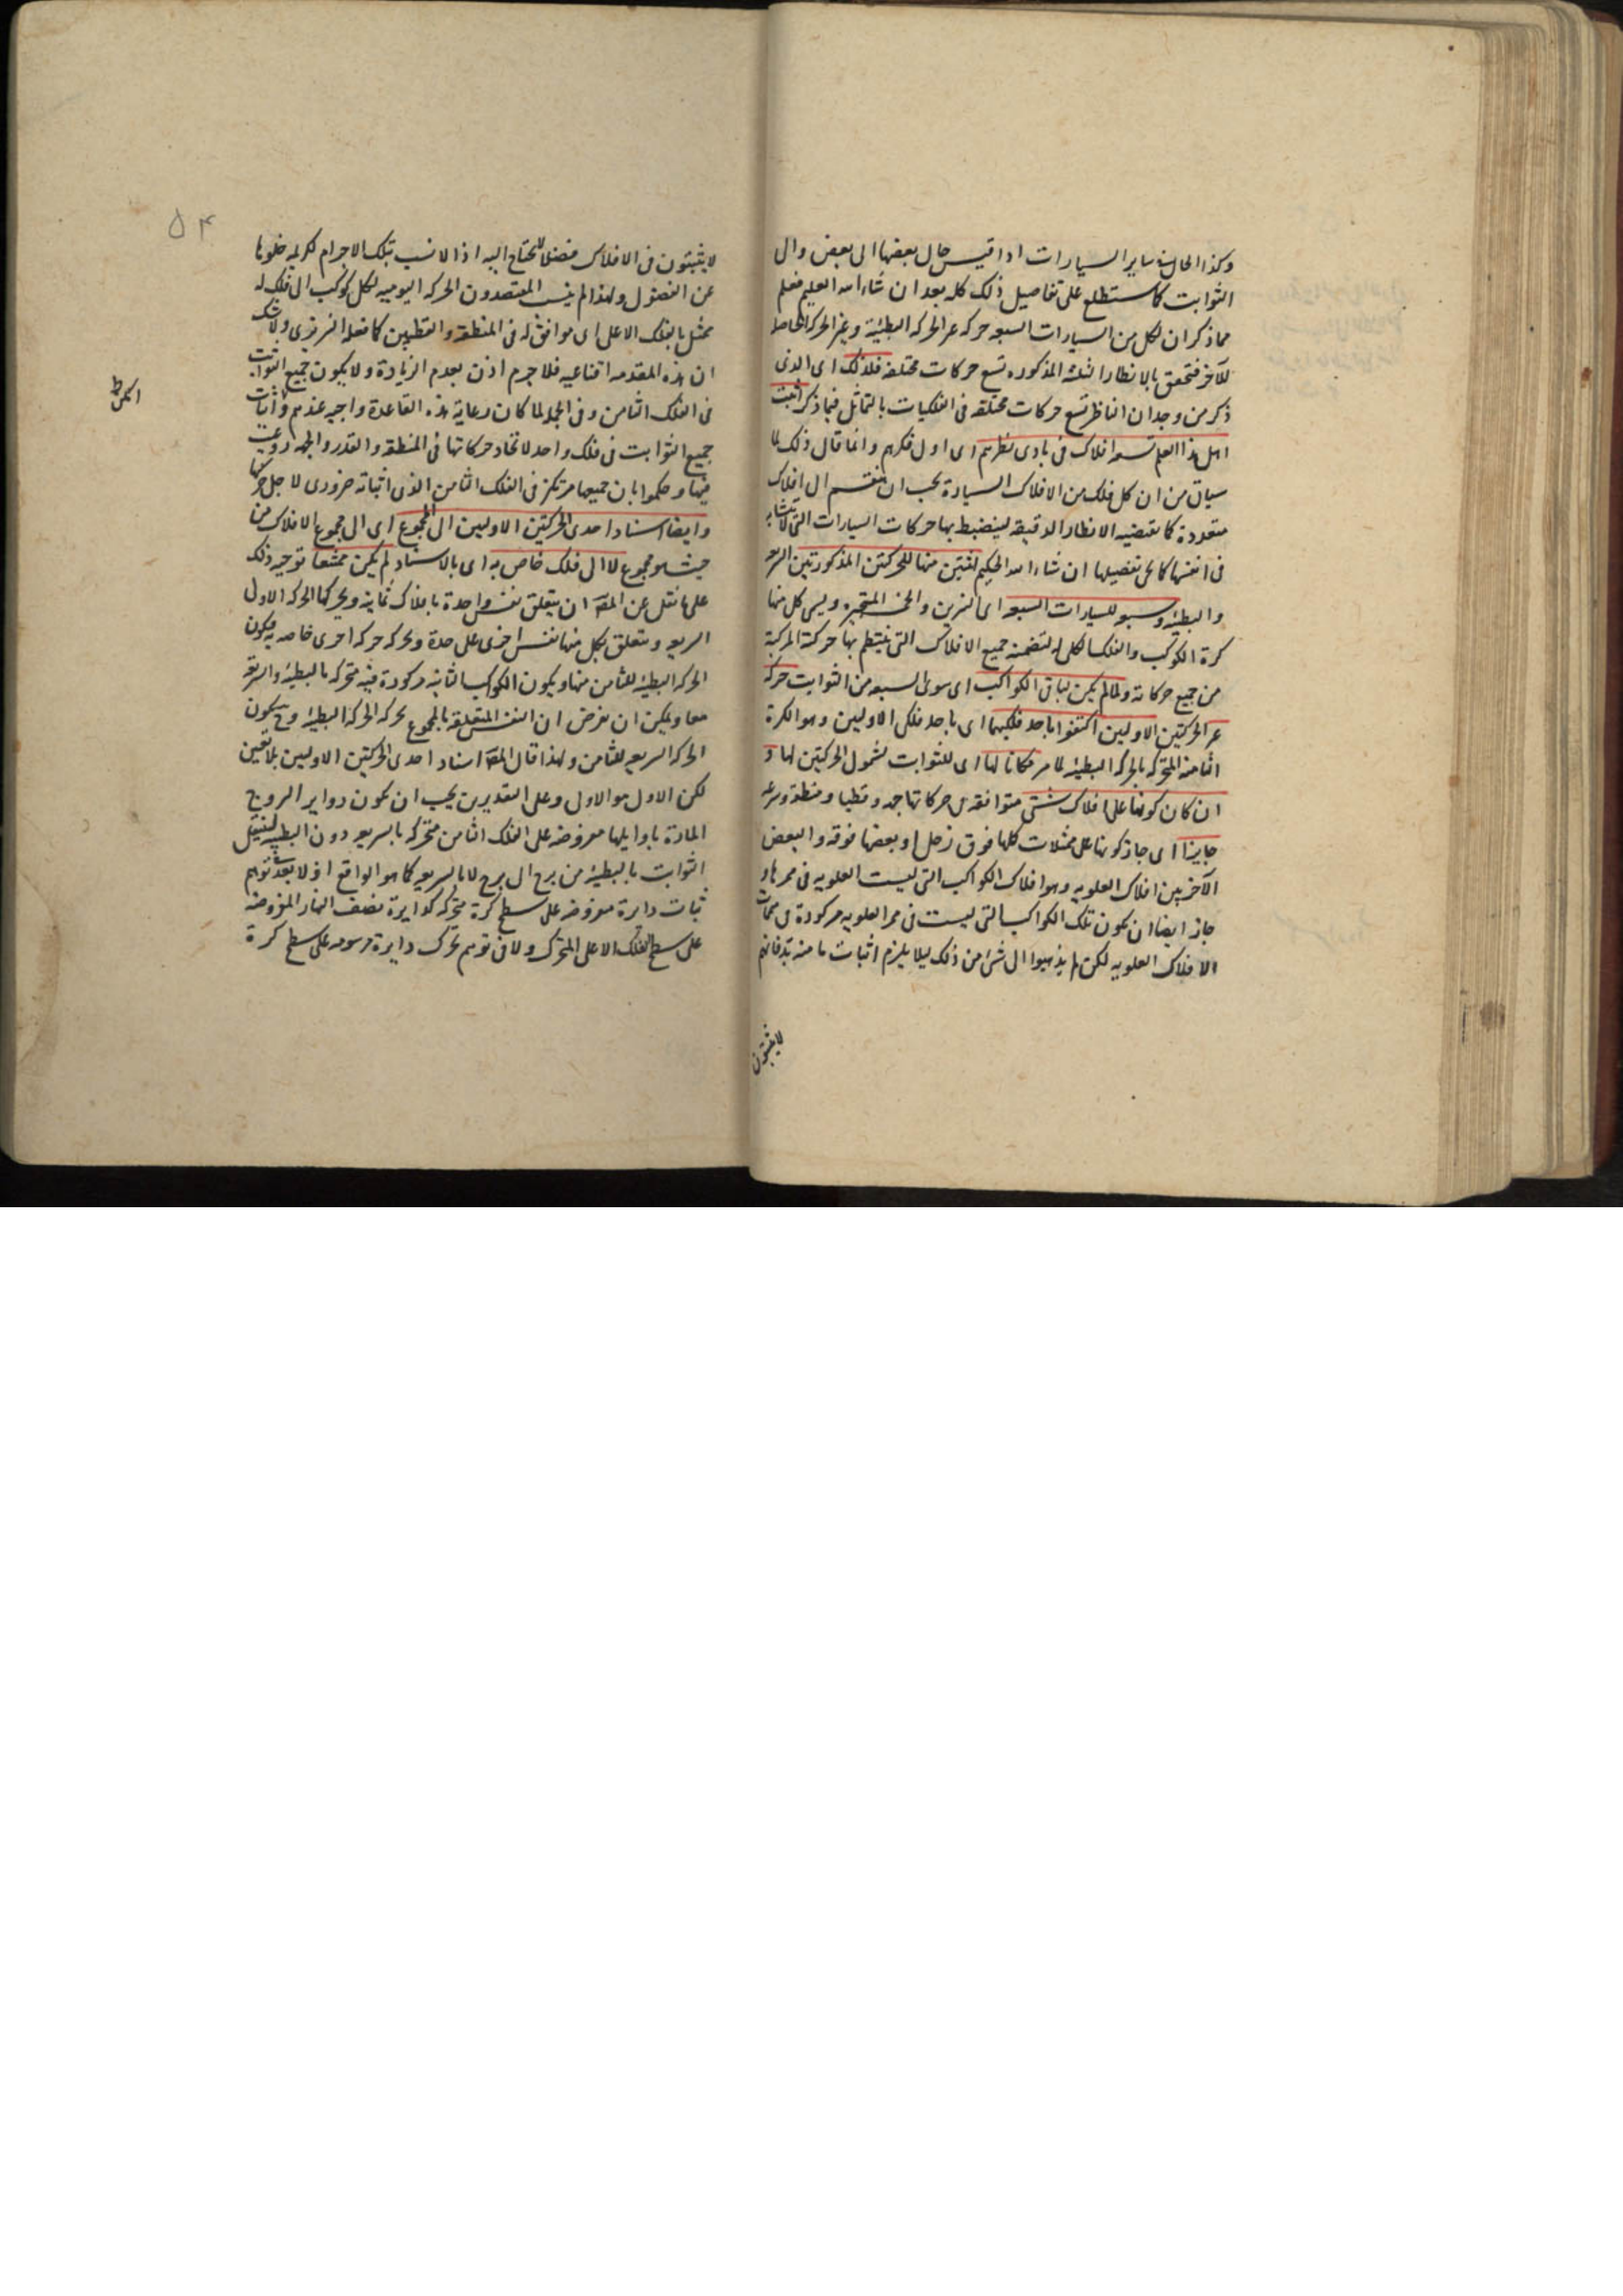 وكذا الحال في ساير السيارات اذا قيس حال بعضها الى بعض والى
الثوابت كما ستطلع على تفاصيل ذلك كله بعد ان شاء الله العليم فعلم
مما ذكر ان لكل من السيارات السبعه حركه غير الحركه البطيئة وغير الحركه الخاصه
للآخر فتحقق بالانظار الثلثه المذكوره تسع حركات مختلفه فلذلك اى الذى
ذكر من وجدان الناظر تسع حركات مختلفه فى الفلكيات بالتماثل فيما ذكر اثبت
اهل هذا العلم تسعه افلاك فى بادى نظرهم اى اول فكرهم وانما قال ذلك لما
سياتى من ان كل فلك من الافلاك السيارة يجب ان ينقسم الى افلاك
متعددة كما تقتضيه الانظار الدقيقه لينضبط بها حركات السيارات التى لا تتشابه
فى انفسها كما يجئ تفصيلها ان شاء الله الحكيم اثنين منها للحركتين المذكورتين السريعه
والبطيئه وسبعه للسيارات السبعه اى النيرين والخمسه المتحيره ويسمى كل منها
كرة الكوكب والفلك الكلى له لتضمنه جميع الافلاك التى ينتظم بها حركته المركبة
من جميع حركاته ولما لم يكن لباقى الكواكب اى سوى السبعه من الثوابت حركة
غير الحركتين الاوليين اكتفوا باحد فلكيهما اى باحد فلكى الاوليين وهو الكرة
الثامنه المتحركه بالحركه البطيئه لما مر مكانا لها اى للثوابت لشمول الحركتين لها و
ان كان كونها على افلاك شتى متوافقه فى حركاتها جهه وقطبا ومنطقة وسرعه
جايزا اى جاز كونها على ممثلات كلها فوق زحل او بعضها فوقه والبعض
الآخر بين افلاك العلويه وهو افلاك الكواكب التى ليست العلويه فى ممرها و
جاز ايضا ان يكون تلك الكواكب التى ليست فى ممر العلويه مركوزة فى ممثلات
الافلاك العلويه لكن لم يذهبوا الى شئ من ذلك ليلا يلزم اثبات ما منه بد فانهم
لا يثبتون
۵۴
لا يثبتون فى الافلاك فضلا لا يحتاج اليه اذ الانسب بتلك الاجرام الكريمه خلوها
عن الفضول ولهذا لم ينسب المقتصدون الحركه اليوميه لكل كوكب الى فلك له
ممثل بالفلك الاعلى اى موافق له فى المنطقه والقطبين كما فعله النيريزى ولا شك
ان هذه المقدمه اقناعيه فلا جرم اذن بعدم الزيادة ولا بكون جميع الثوابت
فى الفلك الثامن وفى الجمله لما كان رعاية هذه القاعدة واجبه عندهم واثبات
جميع الثوابت فى فلك واحد لاتحاد حركاتها فى المنطقه والقدر والجهه روعيت
فيها وحكموا بان جميعها مرتكز فى الفلك الثامن الذى اثباته ضرورى لاجل حركتها
وايضا اسناد احدى الحركتين الاوليين الى المجموع اى الى مجموع الافلاك من
حيث هو مجموع لا الى فلك خاص به اى بالاسناد لم يكن ممتنعا توجيه ذلك
على ما نقل عن المصنف ان يتعلق نفس واحدة بافلاك ثمانية ويحركها الحركه الاولى
السريعه ويتعلق بكل منها نفس اخرى على حدة وتحركه حركه اخرى خاصه به فيكون
الحركه البطيئه للثامن منها ويكون الكواكب الثابته مركوزة فيه متحركه بالبطيئه والسريعه
معا ويمكن ان نفرض ان النفس المتعلقه بالمجموع تحركه الحركه البطيئه وح يكون
الحركه السريعه للثامن ولهذا قال المصنف اسناد احدى الحركتين الاوليين بلا تعيين
لكن الاول هو الاولى وعلى التقديرين يجب ان يكون دواير البروج
المارة باوايلها مفروضه على الفلك الثامن متحركه بالسريعه دون البطيئه لينتقل
الثوابت بالبطيئه من برج الى برج لا بالسريعه كما هو الواقع اذ لا بعد فى توهم
ثبات دايرة مفروضه على سطح كرة متحركه كدايرة نصف النهار المفروضه
على سطح الفلك الاعلى المتحرك ولا فى توهم تحرك دايرة مرسومه على سطح كرة